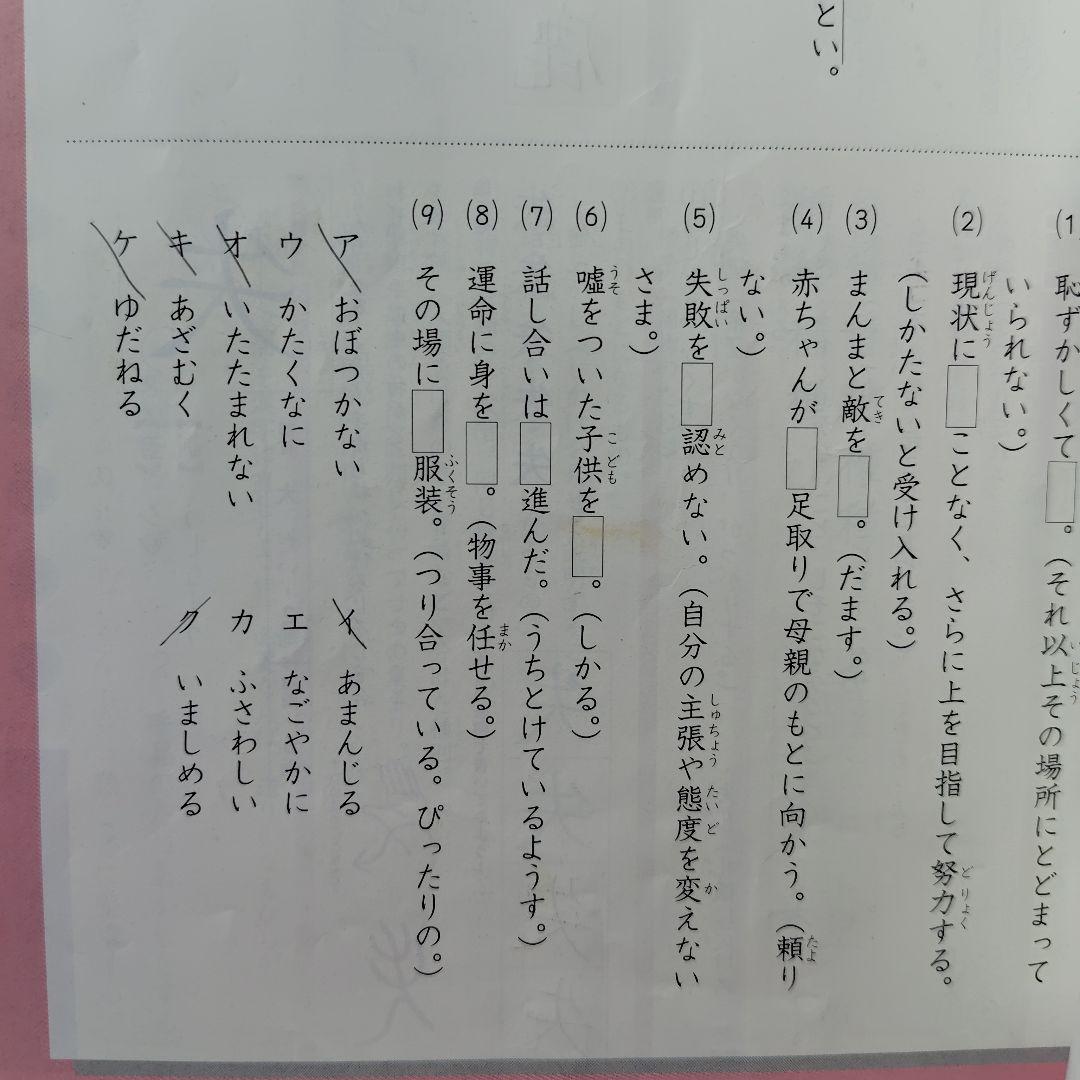 とい。
(1) 恥ずかしくて□。(それ以上その場所にとどまって
いられない。)
(2) 現状に□ことなく、さらに上を目指して努力する。
(しかたないと受け入れる。)
(3) まんまと敵を□。(だます。)
(4) 赤ちゃんが□足取りで母親のもとに向かう。(頼り
ない。)
(5) 失敗を□認めない。(自分の主張や態度を変えない
さま。)
(6) 嘘をついた子供を□。(しかる。)
(7) 話し合いは□進んだ。(うちとけているようす。)
(8) 運命に身を□。(物事を任せる。)
(9) その場に□服装。(つり合っている。ぴったりの。)
ア おぼつかない
イ あまんじる
ウ かたくなに
エ なごやかに
オ いたたまれない
カ ふさわしい
キ あざむく
ク いましめる
ケ ゆだねる